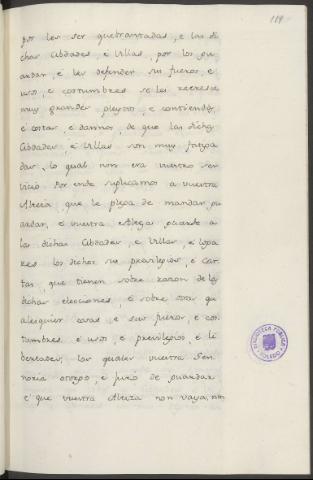 119
por les ser quebrantadas, e las di
chas Cibdades, e Villas, por los gu
ardar, e les defender sus fueros, e
usos, e costumbres se les recrescen
muy grandes pleytos, e contiendas,
e costas, e dannos, de que las dichas
Cibdades, e Villas son muy fatiga
das, lo qual non era vuestro ser
vicio. Por ende suplicamos a vuestra
Alteza, que le plega de mandar gu
ardar, e vuestra Alteza guarde a
las dichas Cibdades, e Villas, e loga
res los dichos sus previlegios, e car
tas, que tienen sobre razon de las
dichas elecciones, e sobre otras qu
alesquier cosas, e sus fueros, e cos
tumbres, e usos, e previlegios, e li
bertades, las quales vuestra Sen
noria otorgo, e juró de guardar
e que vuestra Alteza non vaya, nin
BIBLIOTECA PUBLICA
TOLEDO